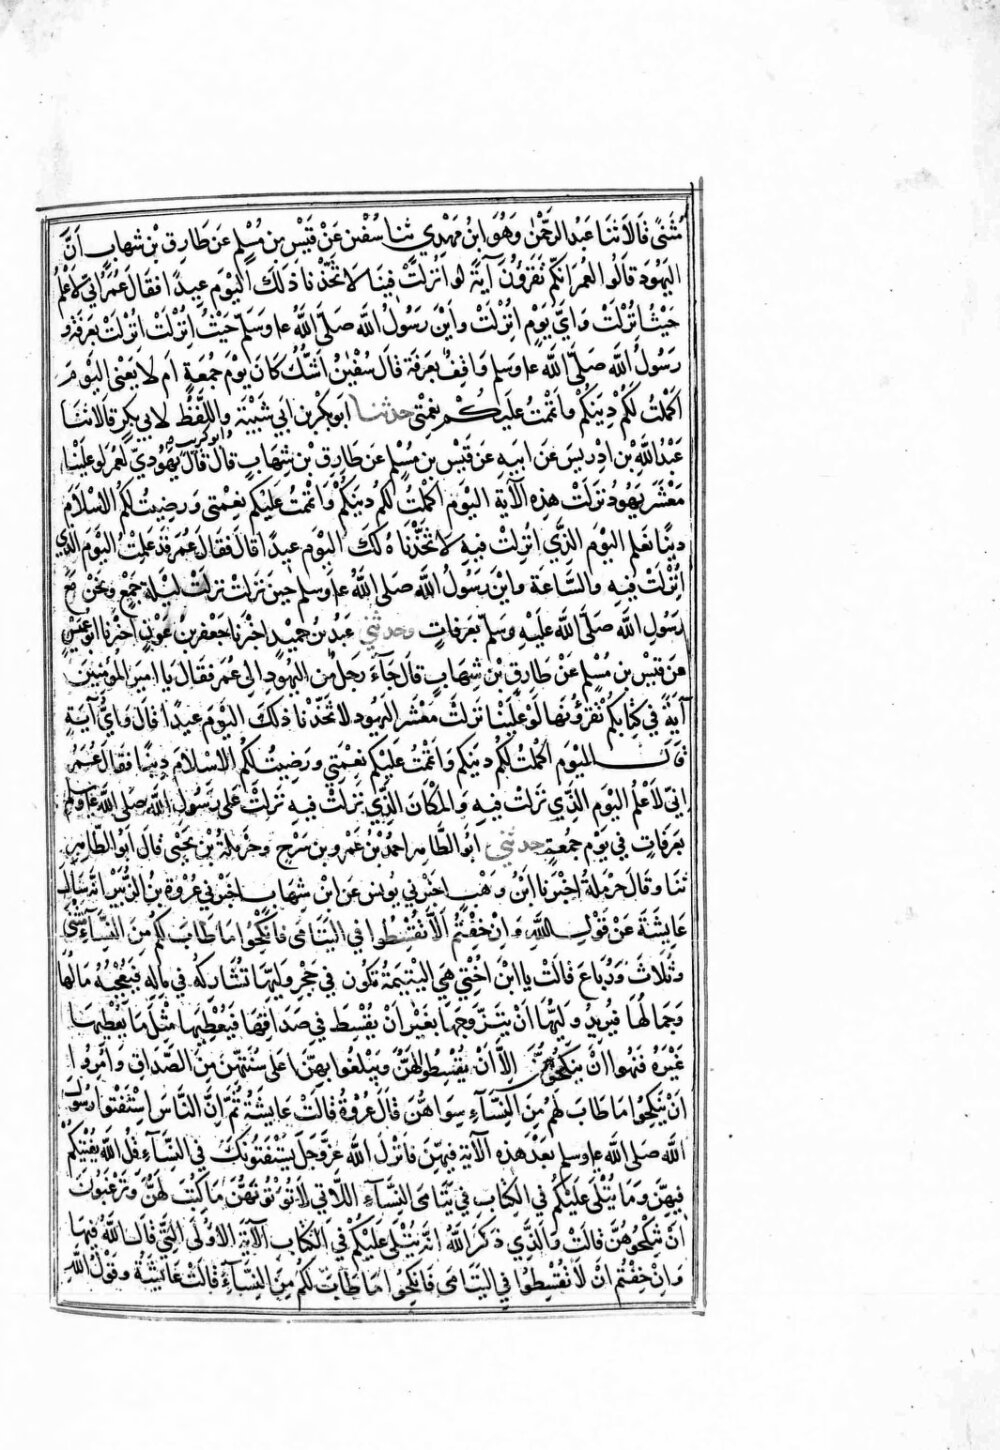 مُثَنًّى قَالَا ثَنَا عَبْدُ الرَّحْمٰنِ وَهُوَ ابْنُ مَهْدِيٍّ ثنا سُفْيٰن عَنْ قَيْسِ بنِ مُسْلِمٍ عَنْ طَارِقِ بْنِ شِهَابٍ اَنَّ
الْيَهُودَ قَالُوا لِعُمَرَ اِنَّكُمْ تَقْرَؤُنَ آيَةً لَو اُنْزِلَتْ فِينَا لَاتَّخَذْنَا ذَلِكَ الْيَوْمَ عِيدًا فَقَالَ عُمَرُ اِنِّي لَاَعْلَمُ
حَيْثُ اُنْزِلَتْ وَاَيَّ يَوْمٍ اُنْزِلَتْ وَاَيْنَ رَسُولُ اللَّهِ صَلَّى اللَّهُ عل وسَلَّم حَيْثُ اُنْزِلَتْ اُنْزِلَتْ بِعَرَفَةَ وَ
رَسُولُ اللَّهِ صَلَّى اللَّه عل وسلم وَاقِفٌ بِعَرَفَةَ قَالَ سُفْيٰنُ اَشُكُّ كَانَ يَوْمَ جُمُعَةٍ اَم لَا يَعْنِي الْيَوْمَ
اَكْمَلْتُ لَكُمْ دِينَكُمْ وَاَتْمَمْتُ عَلَيْكُمْ نِعْمَتِي حدثنا ابُوبَكْرِ بن اَبِي شَيْبَةَ وَاللَّفْظُ لِاَبِي بَكْرٍ قَالَا ثَنَا
وابو كريب
عَبْدُ اللَّهِ بْن اِدْرِيسَ عَن اَبِيهِ عَن قَيْسِ بن مُسْلِمٍ عَن طَارِقِ بْنِ شِهَابٍ قَال قَالَ يَهُودِيٌّ لِعُمَرَ لَو عَلَيْنَا
مَعْشَرَ يَهُودَ نَزَلَتْ هَذِهِ الْآيَةُ الْيَوْمَ اَكْمَلْتُ لَكُمْ دِينَكُمْ وَاَتْمَمْتُ عَلَيْكُم نِعْمَتِي وَرَضِيتُ لَكُمُ الْاِسْلَامَ
دِينًا نَعْلَم الْيَوْمَ الَّذِي اُنْزِلَتْ فِيهِ لَاتَّخَذْنَا ذَلِكَ الْيَوْمَ عِيدًا قَالَ فَقَالَ عُمَرُ قَد عَلِمْتُ الْيَوْمَ الَّذِي
اُنْزِلَتْ فِيهِ والسَّاعَةَ وَاَيْنَ رَسُولُ اللَّهِ صَلَى اللَّهُ عل وسلم حِينَ نَزَلَتْ نَزَلَتْ لَيْلَةَ جَمْعٍ وَنَحْنُ مَعَ
رَسُولِ اللَّه صَلَّى اللَّه عَلَيْهِ وَسَلَّم بِعَرَفَاتٍ وحدثني عَبْدُ بْن حُمَيْدٍ اَخْبَرَنَا جَعْفَرُ بْنُ عَوْنٍ اَخْبَرَنَا اَبُو عُمَيْسٍ
عَنْ قَيْسِ بنِ مُسْلِمٍ عَنْ طَارِقِ بْنِ شِهَابٍ قَالَ جَاءَ رَجُلٌ مِنَ الْيَهُودِ الَى عُمَرَ فَقَالَ يَا اَمِيرَ الْمُؤْمِنِينَ
آيَةٌ فِي كِتَابِكُمْ تَقْرَؤُنَهَا لَوْ عَلَيْنَا نَزَلَتْ مَعْشَرَ الْيَهُودِ لَاتَّخَذْنَا ذَلِكَ الْيَوْمَ عِيدًا قَالَ وَاَيُّ آيَةٍ
قَالَ الْيَوْمَ اَكْمَلْتُ لَكُمْ دِينَكُم وَاَتْمَمْتُ عَلَيْكُم نِعْمَتِي وَرَضِيتُ لَكُمُ الْاِسْلَامَ دِينًا فَقَالَ عُمَرُ
اِنّي لَاَعْلَمُ الْيَوْمَ الَّذِي نَزَلَتْ فِيهِ وَالْمَكَانَ الَّذِي نَزَلَتْ فِيهِ نَزَلَتْ عَلَى رَسُولِ اللَّهِ صَلى اللَّهُ عل وسلم
بِعَرَفَاتٍ فِي يَوْمِ جُمُعَةٍ حدثني اَبُو الطَّاهِرِ اَحْمَدُ بْنُ عَمْرِو بن سَرْحٍ وَحَرْمَلَةُ بْن يَحْيَى قَالَ اَبُو الطَّاهِرِ
ثَنَا وقَالَ حَرْمَلَةُ اَخْبَرَنَا ابْنُ وَهْبٍ اَخْبَرَنِي يُونُسُ عَنِ ابْنِ شِهَابٍ اَخْبَرَنِي عُرْوَةُ بْنُ الزُّبَيْرِ اَنَّهُ سَاَلَ
عَايِشَةَ عَنْ قَوْلِ اللَّهِ وَاِنْ خِفْتُمْ اَلَّا تُقْسِطُوا فِي الْيَتَامَى فَانْكِحُوا مَا طَابَ لَكُمْ مِنَ النِّسَاءِ مَثْنَى
وَثُلَاثَ وَرُبَاعَ قَالَتْ يَا ابْنَ اُخْتِي هِيَ الْيَتِيمَةُ تَكُون فِي حَجْرِ وَلِيِّهَا تُشَارِكُهُ فِي مَالِهِ فَيُعْجِبُهُ مَالُهَا
وَجَمَالُهَا فَيُرِيدُ وَلِيُّهَا اَنْ يَتَزَوَّجَهَا بِغَيْرِ اَنْ يُقْسِطَ فِي صَدَاقِهَا فَيُعْطِيهَا مِثْلَ مَا يُعْطِيهَا
غَيْرُهُ فَنُهُوا اَنْ يَنْكِحُوهُنَّ اِلَّا اَنْ يُقْسِطُوا لَهُنَّ وَيَبْلُغُوا بِهِنَّ اَعْلَى سُنَّتِهِنَّ مِنَ الصَّدَاقِ وَاُمِرُوا
اَنْ يَنْكِحُوا مَا طَابَ لَهُمْ مِنَ النِّسَاءِ سِوَاهُنَّ قَالَ عُرْوَةُ قَالَتْ عَايِشَةُ ثُمَّ اِنَّ النَّاسَ اسْتَفْتَوْا رَسُولَ
اللَّه صَلى اللَّه عل وسلم بَعْدَ هَذِهِ الْآيَةِ فِيهِنَّ فَاَنْزَلَ اللَّهُ عَزَّ وَجَلَّ يَسْتَفْتُونَكَ فِي النِّسَاءِ قُلِ اللَّهُ يُفْتِيكُمْ
فِيهِنَّ وَمَا يُتْلَى عَلَيْكُمْ فِي الْكِتَابِ فِي يَتَامَى النِّسَاءِ اللَّاتِي لَا تُؤْتُونَهُنَّ مَا كُتِبَ لَهُنَّ وَتَرْغَبُونَ
اَنْ تَنْكِحُوهُنَّ قَالَتْ وَالَّذِي ذَكَرَ اللَّهُ اَنَّهُ يُتْلَى عَلَيْكُمْ فِي الْكِتَابِ الْآيَةُ الْاُولَى الَّتِي قَالَ اللَّهُ فِيهَا
وَاِنْ خِفْتُمْ اَنْ لَا تُقْسِطُوا فِي الْيَتَامَى فَانْكِحُوا مَا طَابَ لَكُمْ مِنَ النِّسَاءِ قَالَتْ عَايِشَةُ وَقَوْلُ اللَّهِ